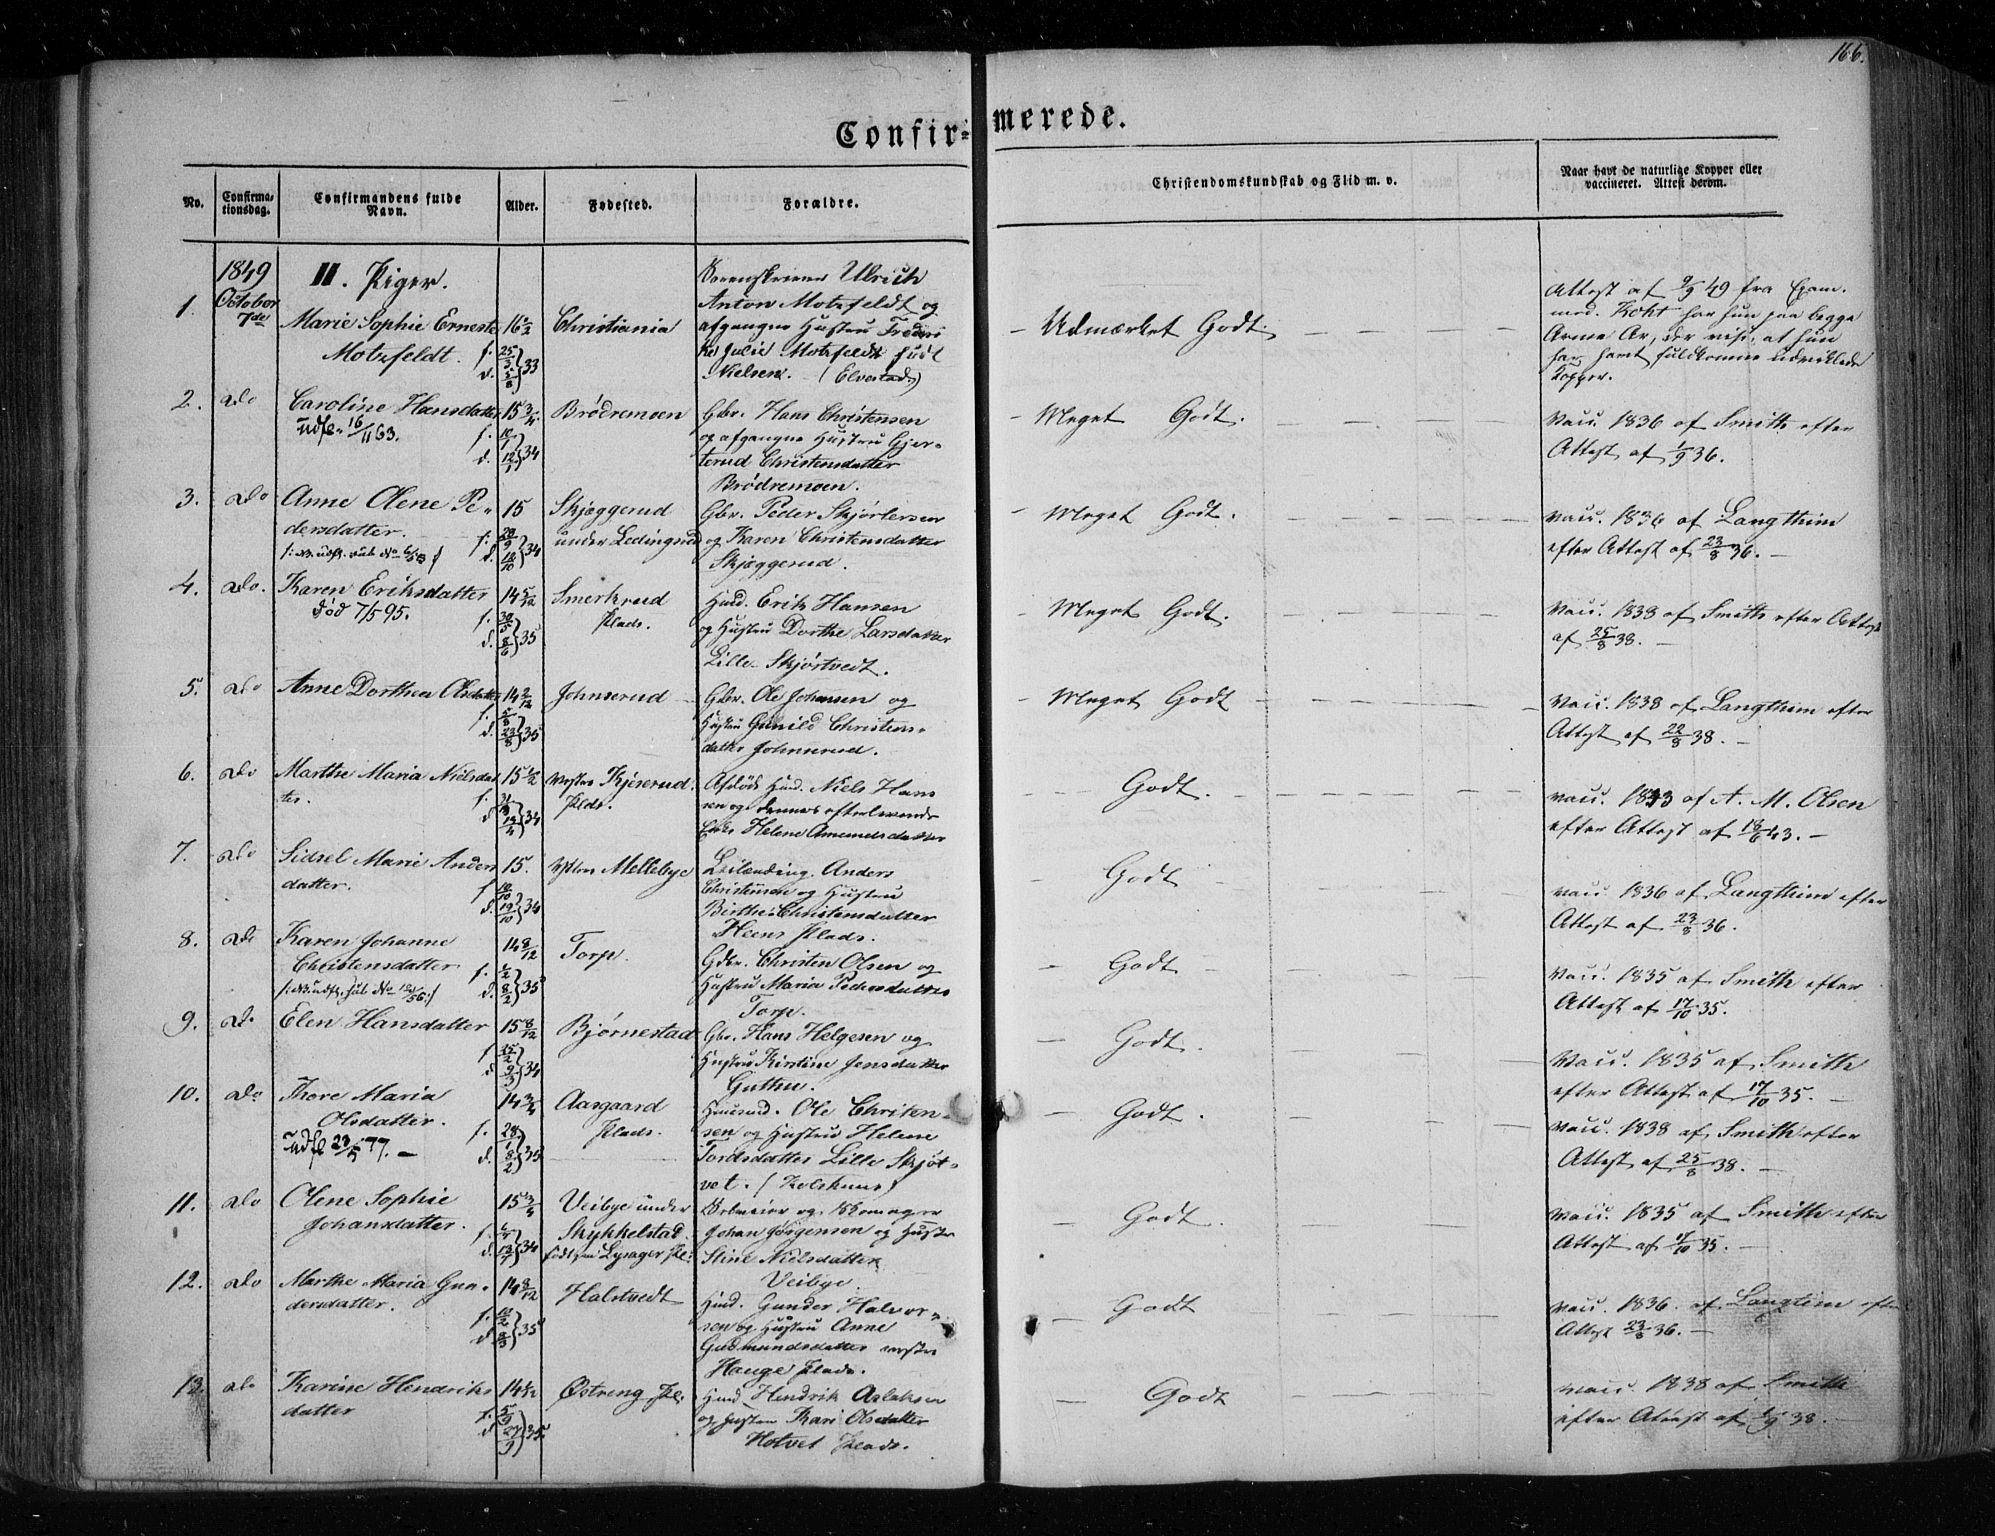 166.
Confirmerede.
No.
Confirmationsdag.
Confirmandens fulde Navn.
Alder.
Fødested.
Forældre.
Christendomskundskab og Flid m. v.
Naar havt de naturlige Kopper eller vaccineret. Attest derom.
1849 II. Piger.
1. October 7de
Marie Sophie Erneste
Motzfeldt.
Christiania
Sorenskriver Ulrich
Anton Motzfeldt og
afgangne Hustru Frederi
ke Julie Motzfeldt født
Nielsen. (Elvestad)
Udmærket Godt.
Attest af 9/9 49 fra Exam.
med. Koht har hun paa begge
Arme Ar, der vise, at hun
har havt fuldkomne udviklede
Kopper.
2. Do Caroline Hansdatter 15 3/4 Brödremoen
Udf. 16/11 63.
f. 10/1 d. 12/1 34
Gbr. Hans Christensen
og afgangne Hustru Gjer-
terud Christensdatter
Brödremoen.
Meget Godt.
Vacc. 1836 af Smith efter
Attest af 1/9 36.
3. Do Anne Olene Pe-
dersdatter.
15
f. 20/9 d. 12/10 34
Skjæggerud
under Ledingrud
Gbr. Peder Skjörtersen
og Karen Christensdatter
Skjæggerud.
Meget Godt.
Vacc. 1836 af Langthim
efter Attest af 23/8 36.
4. Do. Karen Eriksdatter 14 5/12 Smerkrud
Død 7/5 95. Plads.
f. 30/5 d. 8/6 35
Husd. Erik Hansen
og Hustru Dorthe Larsdatter
Lille Skjørtvedt.
Meget Godt.
Vacc. 1838 af Smith efter Attest
af 25/8 38.
5. Do Anne Dorthea Olsdatter 14 2/12 Johnserud
f. 5/8 d. 23/8 35
Gbr. Ole Johansen og
Hustru Gunild Christens-
datter Johnserud.
Meget Godt
Vacc. 1838 af Langthim efter
Attest af 22/8 38.
6. Do Marthe Maria Nielsdat
ter.
15 1/2
d. 13/4 34
Vestre Kjeserud.
Plds.
Afdöde Husd. Niels Han
sen og dennes efterlevende
Enke Helene Amundsdatter
Godt.
Vacc. 1843 af A. M. Olsen
efter Attest af 18/6 43.
7. Do Sidsel Marie Anders
datter.
15.
f. 10/10 d. 19/10 34
Mellebye
Leilænding Anders
Christensen og Hustru
Birthe Christensdatter
Heens Plads.
Godt
Vacc. 1836 af Langthim efter
Attest af 23/8 36.
8. Do Karen Johanne
Christensdatter
14 8/12
f. 1/2 d. 8/2 35
Torp.
Gdbr. Christen Olsen og
Hustru Maria Pedersdatter
Torp.
Godt
Vacc. 1835 af Smith efter
Attest af 17/10 35.
9. Do Elen Hansdatter 15 8/12 Bjørnestad
f. 15/2 d. 9/3 34
Gbr. Hans Helgesen og
Hustru Kirstine Jensdatter
Guthu.
Godt.
Vacc. 1835 af Smith
efter Attest af 17/10 35.
10. Do Thore Maria
Olsdatter.
Udf. 23/5 77.
14 3/4
f. 28/1 d. 8/2 35
Aasgaard
Plads.
Huusmd. Ole Christen-
sen og Hustru Helene
Tordsdatter Lille Skjøt-
vet.
Godt.
Vacc. 1838 af Smith efter
Attest af 25/8 38.
11. Do Olene Sophie
Johansdatter.
15 3/4
d. 13/7 34
Veibye under
Skykkelstad
født paa Lysager Pl.
Selveier og Skomager
Johan Jørgensen og Hustru
Stine Nielsdatter
Veibye.
Godt.
Vacc. 1835 af Smith efter
Attest af 17/10 35.
12. Do Marthe Maria Gun-
dersdatter.
14 8/12
f. 12/2 d. 8/3 35
Halstvedt
Husd. Gunder Halvor-
sen og Hustru Anne
Gudmundsdatter vestre
Hauge Plads.
Godt
Vacc. 1836 af Langtim efter
Attest 23/8 36.
13. Do Karine Hendriks
datter
14 1/12
f. 5/9 d. 27/9 35
Østreng Pl.
Husd. Hendrik Aslaksen
og Hustru Kari Olsdatter
Hotvet Plads.
Godt
Vacc. 1838 af Smith
efter Attest af 1/9 38.